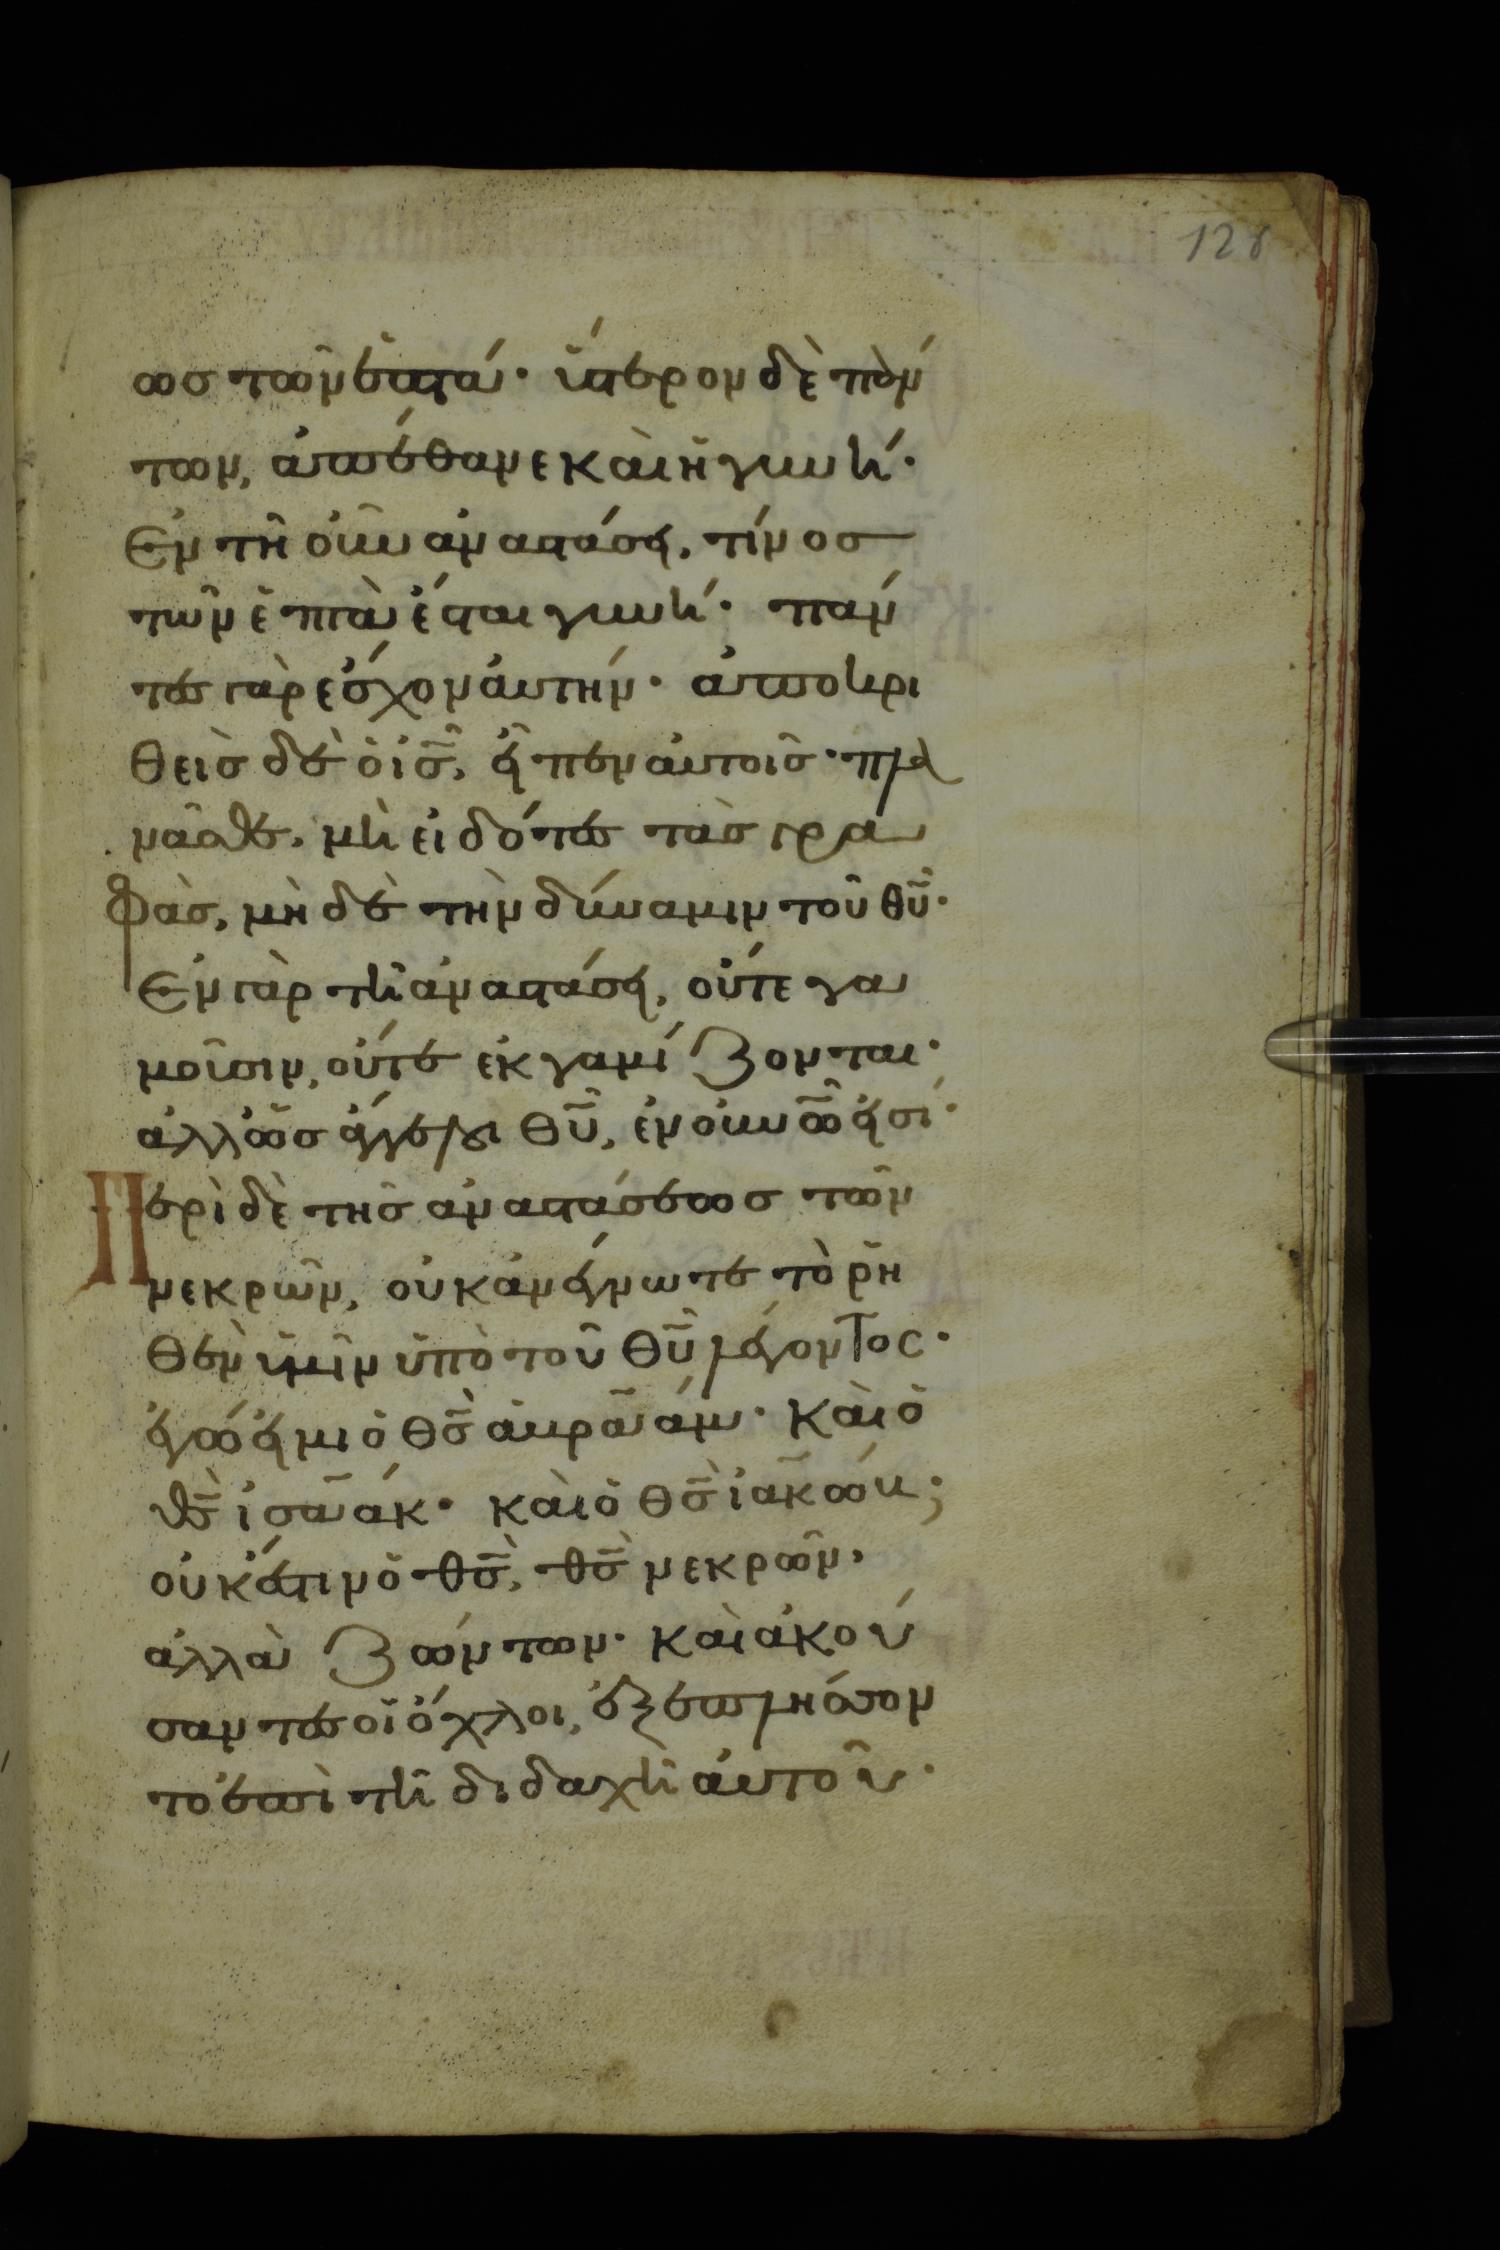 128
ωσ τῶν ἑπτά· ὕστερον δὲ πάν
των, ἀπέθανε καὶ ἡ γυνή·
Ἐν τῆ οὖν ἀναστάσει, τίνοσ
τῶν ἑπτὰ ἔσται γυνή· πάν
τεσ γὰρ ἔσχον ἀυτήν· ἀποκρι
θεὶσ δὲ ὁ ἰ̅σ̅, εἶπεν ἀυτοῖσ· πλα
νᾶσθε, μὴ εἰδότεσ τὰσ γρα
φὰσ, μὴ δὲ τὴν δύναμιν τοῦ θ̅υ̅·
Ἐν γὰρ τῆ ἀναστάσει, οὔτε γα
μοῦσιν, οὔτε ἐκγαμίζονται·
ἀλλ' ὡσ ἄγγελοι θ̅υ̅, ἐν οὐνῶ εἰσί·
Περὶ δὲ τῆσ ἀναστάσεωσ τῶν
νεκρῶν, οὐκ ἀνέγνωτε τὸ ρη
θὲν ὑμῖν ὑπὸ τοῦ θ̅υ̅ λέγοντος·
ἐγώ εἰμι ὁ θ̅σ̅ ἀβραάμ· καὶ ὁ
θ̅σ̅ ἰσαάκ· καὶ ὁ θ̅σ̅ ἰακώβ;
οὐκ ἔστιν ὁ θ̅σ̅, θ̅σ̅ νεκρῶν,
ἀλλὰ ζώντων· καὶ ἀκού
σαντεσ οἱ ὄχλοι, ἐξεπλήσσον
το ἐπὶ τῆ διδαχῆ ἀυτοῦ·